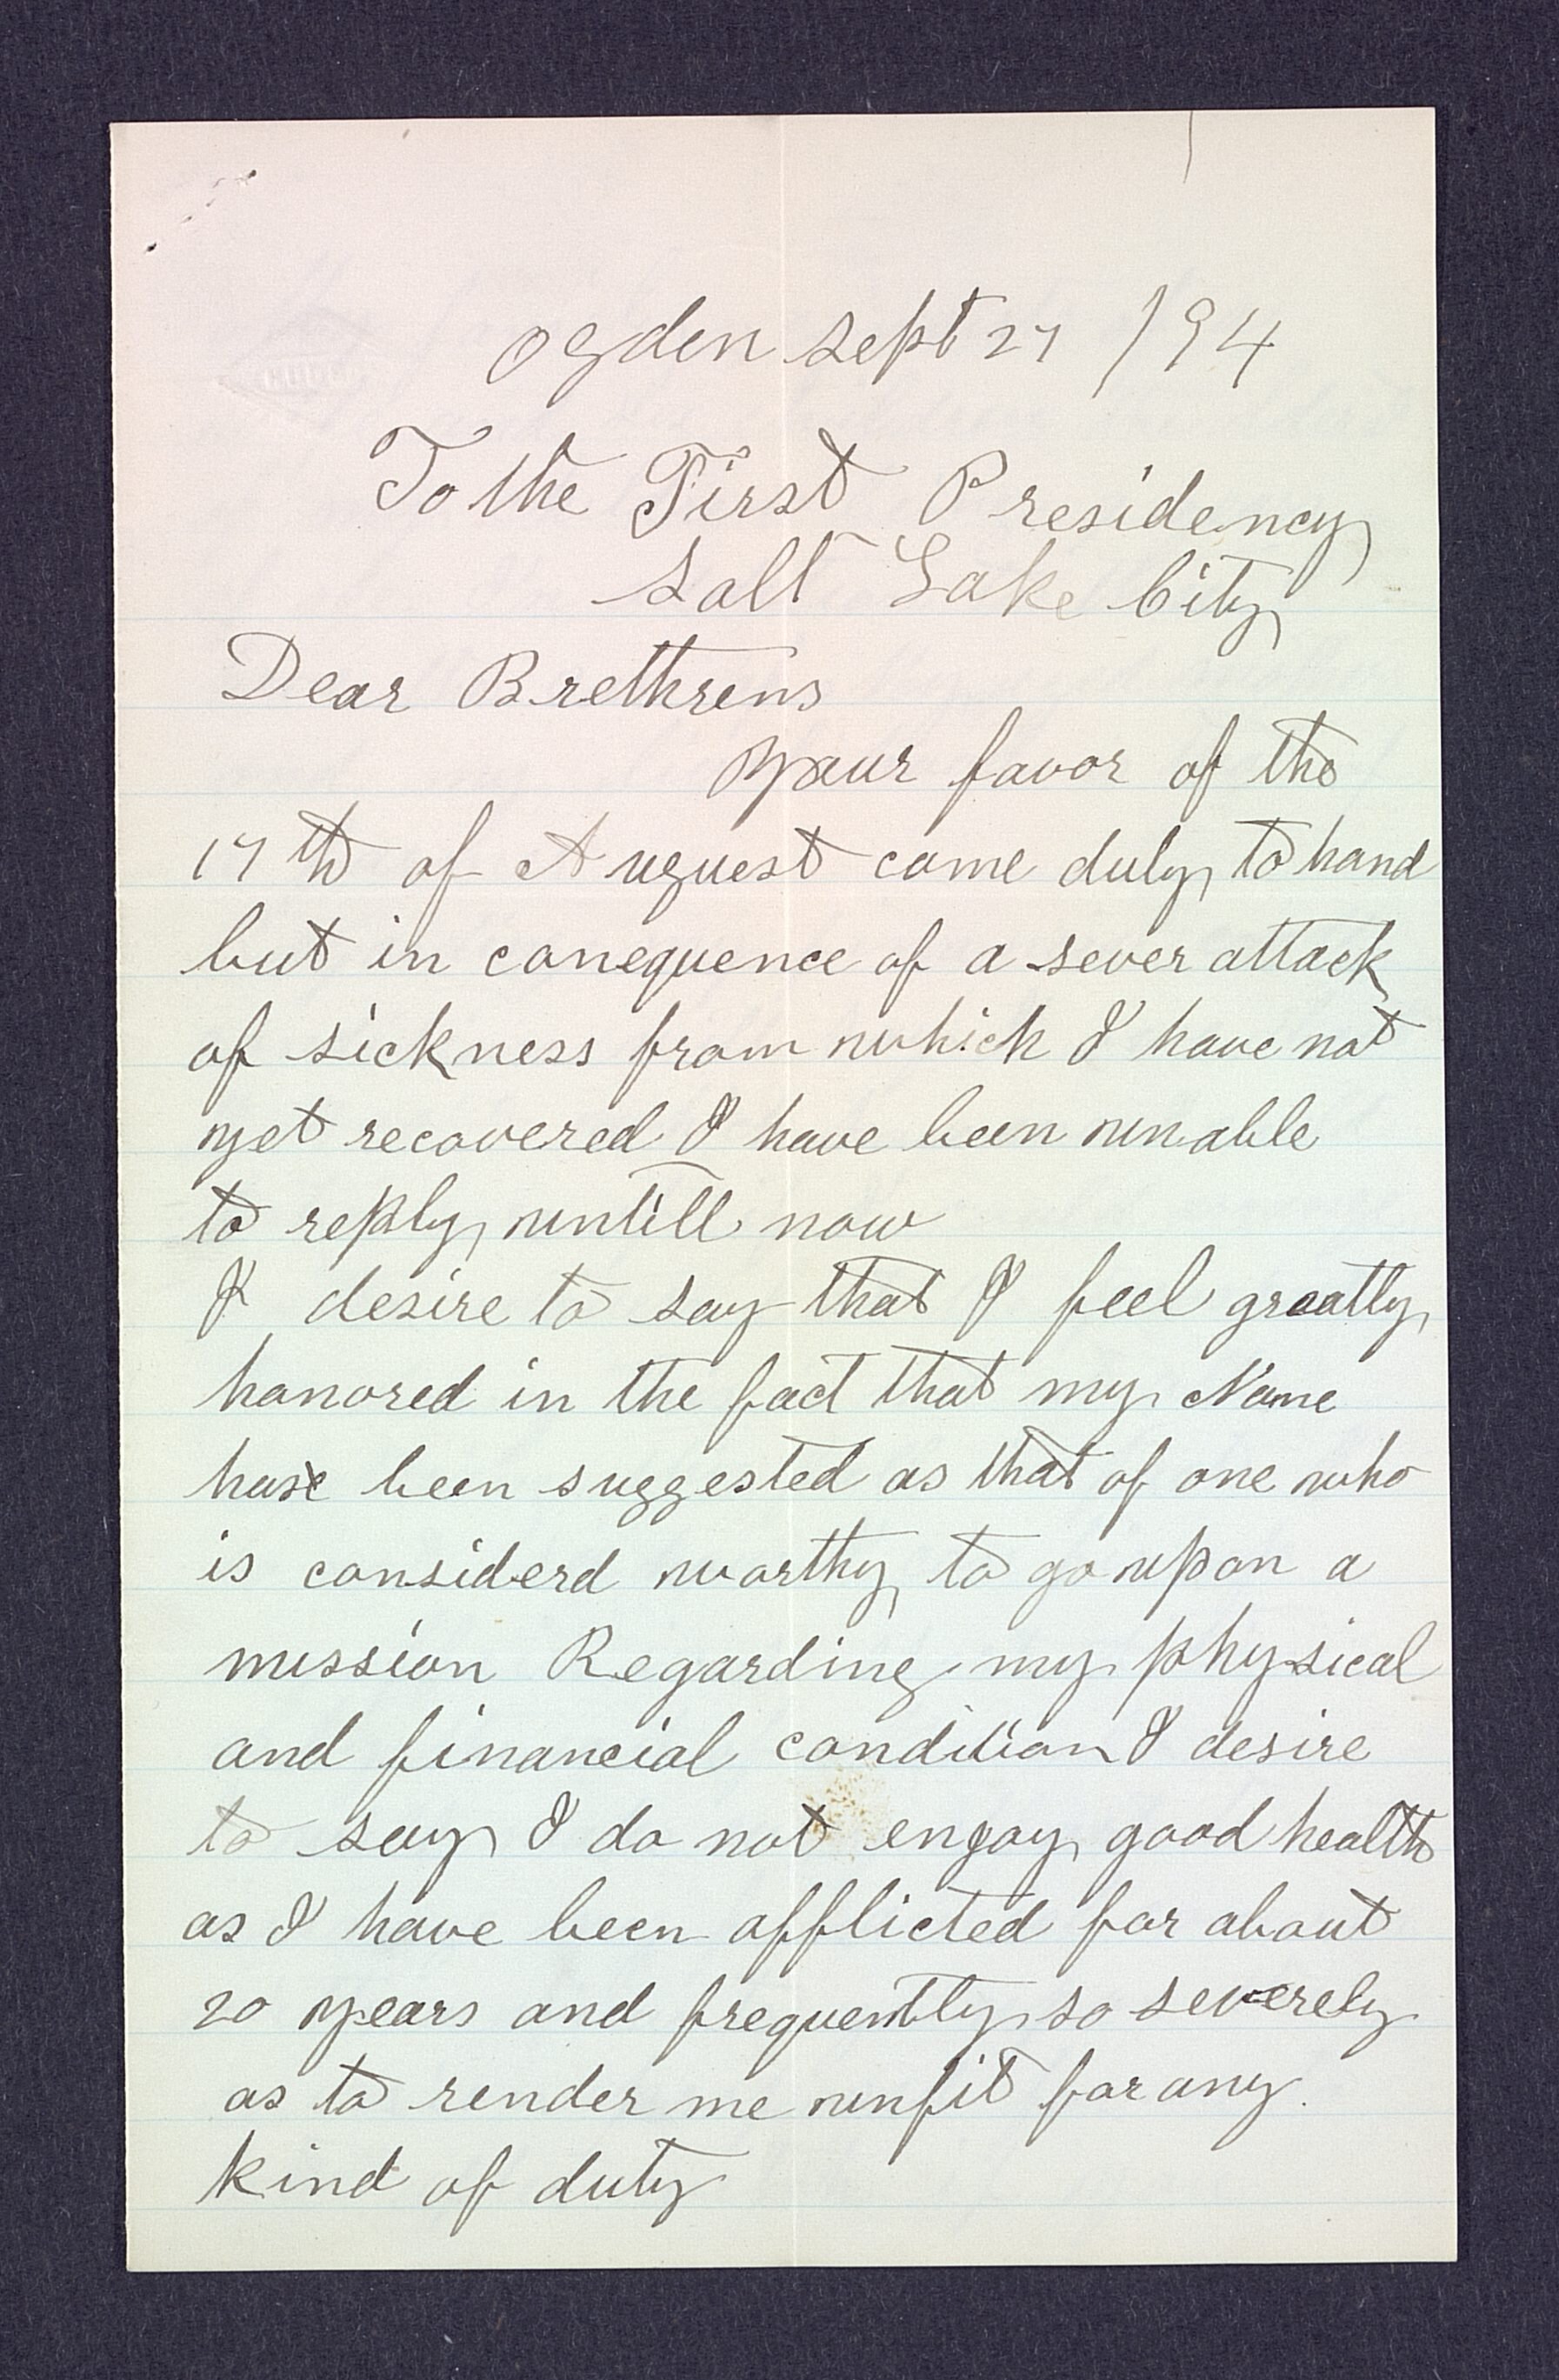 Ogden Sept 27 /94
To the First Presidency
Salt Lake City
Dear Brethrens
Your favor of the
17th of August came duly to hand
but in conequence of a sever attack
of sickness from which I have not
yet recovered I have been unable
to reply untill now
I desire to say that I feel greatly
honored in the fact that my Name
has been suggested as that of one who
is considerd worthy to go upon a
mission Regarding my physical
and financial condition I desire
to say I do not enjoy good health
as I have been afflicted for about
20 years and frequently so severely
as to render me unfit for any
kind of duty